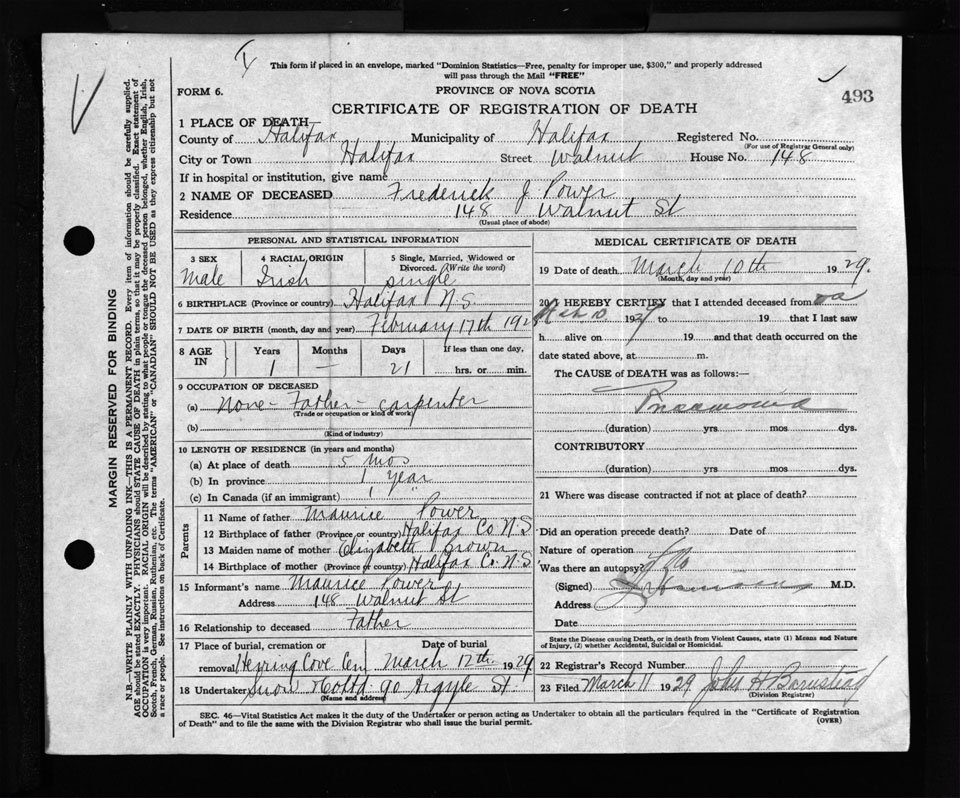 This form if placed in an envelope, marked "Dominion Statistics—Free, penalty for improper use, $300," and properly addressed
will pass through the Mail "FREE"
FORM 6.
PROVINCE OF NOVA SCOTIA
493
CERTIFICATE OF REGISTRATION OF DEATH
1 PLACE OF DEATH
County of Halifax Municipality of Halifax Registered No.
(For use of Registrar General only)
City or Town Halifax Street Walnut House No. 148
If in hospital or institution, give name
2 NAME OF DECEASED Frederick J Power
Residence 148 Walnut St
(Usual place of abode)
PERSONAL AND STATISTICAL INFORMATION
3 SEX 4 RACIAL ORIGIN 5 Single, Married, Widowed or
Divorced. (Write the word)
Male Irish Single
6 BIRTHPLACE (Province or country) Halifax N.S.
7 DATE OF BIRTH (month, day and year) February 17th 1928
8 AGE IN Years Months Days If less than one day,
1 — 21 hrs. or min.
9 OCCUPATION OF DECEASED
(a) None - Father - carpenter
(Trade or occupation or kind of work)
(b)
(Kind of industry)
10 LENGTH OF RESIDENCE (in years and months)
(a) At place of death 5 mos
(b) In province 1 year
(c) In Canada (if an immigrant) 1 "
Parents
11 Name of father Maurice Power
12 Birthplace of father (Province or country) Halifax Co N.S
13 Maiden name of mother Elizabeth Brown
14 Birthplace of mother (Province or country) Halifax Co. N.S
15 Informant's name Maurice Power
Address 148 Walnut St
16 Relationship to deceased Father
17 Place of burial, cremation or Date of burial
removal Herring Cove Cem March 12th 1929
18 Undertaker Snow 90 Argyle St
(Name and address)
MEDICAL CERTIFICATE OF DEATH
19 Date of death March 10th 1929.
(Month, day and year)
20 I HEREBY CERTIFY that I attended deceased from
10 1929 to 19 that I last saw
h alive on 19 and that death occurred on the
date stated above, at m.
The CAUSE of DEATH was as follows:—
Pneumonia
(duration) yrs mos dys.
CONTRIBUTORY
(duration) yrs mos dys.
21 Where was disease contracted if not at place of death?
Did an operation precede death? Date of
Nature of operation
Was there an autopsy? No
(Signed) M.D.
Address
Date
State the Disease causing Death, or in death from Violent Causes, state (1) Means and Nature
of Injury, (2) whether Accidental, Suicidal or Homicidal.
22 Registrar's Record Number
23 Filed March 11 1929 John H
(Division Registrar)
SEC. 46—Vital Statistics Act makes it the duty of the Undertaker or person acting as Undertaker to obtain all the particulars required in the "Certificate of Registration
of Death" and to file the same with the Division Registrar who shall issue the burial permit.
(OVER)
MARGIN RESERVED FOR BINDING
N.B.—WRITE PLAINLY WITH UNFADING INK—THIS IS A PERMANENT RECORD. Every item of information should be carefully supplied.
AGE should be stated EXACTLY. PHYSICIANS should STATE CAUSE OF DEATH in plain terms, so that it may be properly classified. Exact statement of
OCCUPATION is very important. RACIAL ORIGIN will be described by stating to what people or tongue the deceased person belonged, whether English, Irish,
Scotch, French, German, Russian, Ruthenian, etc. The terms "AMERICAN" or "CANADIAN" SHOULD NOT BE USED as they express citizenship but not
a race or people. See instructions on back of Certificate.